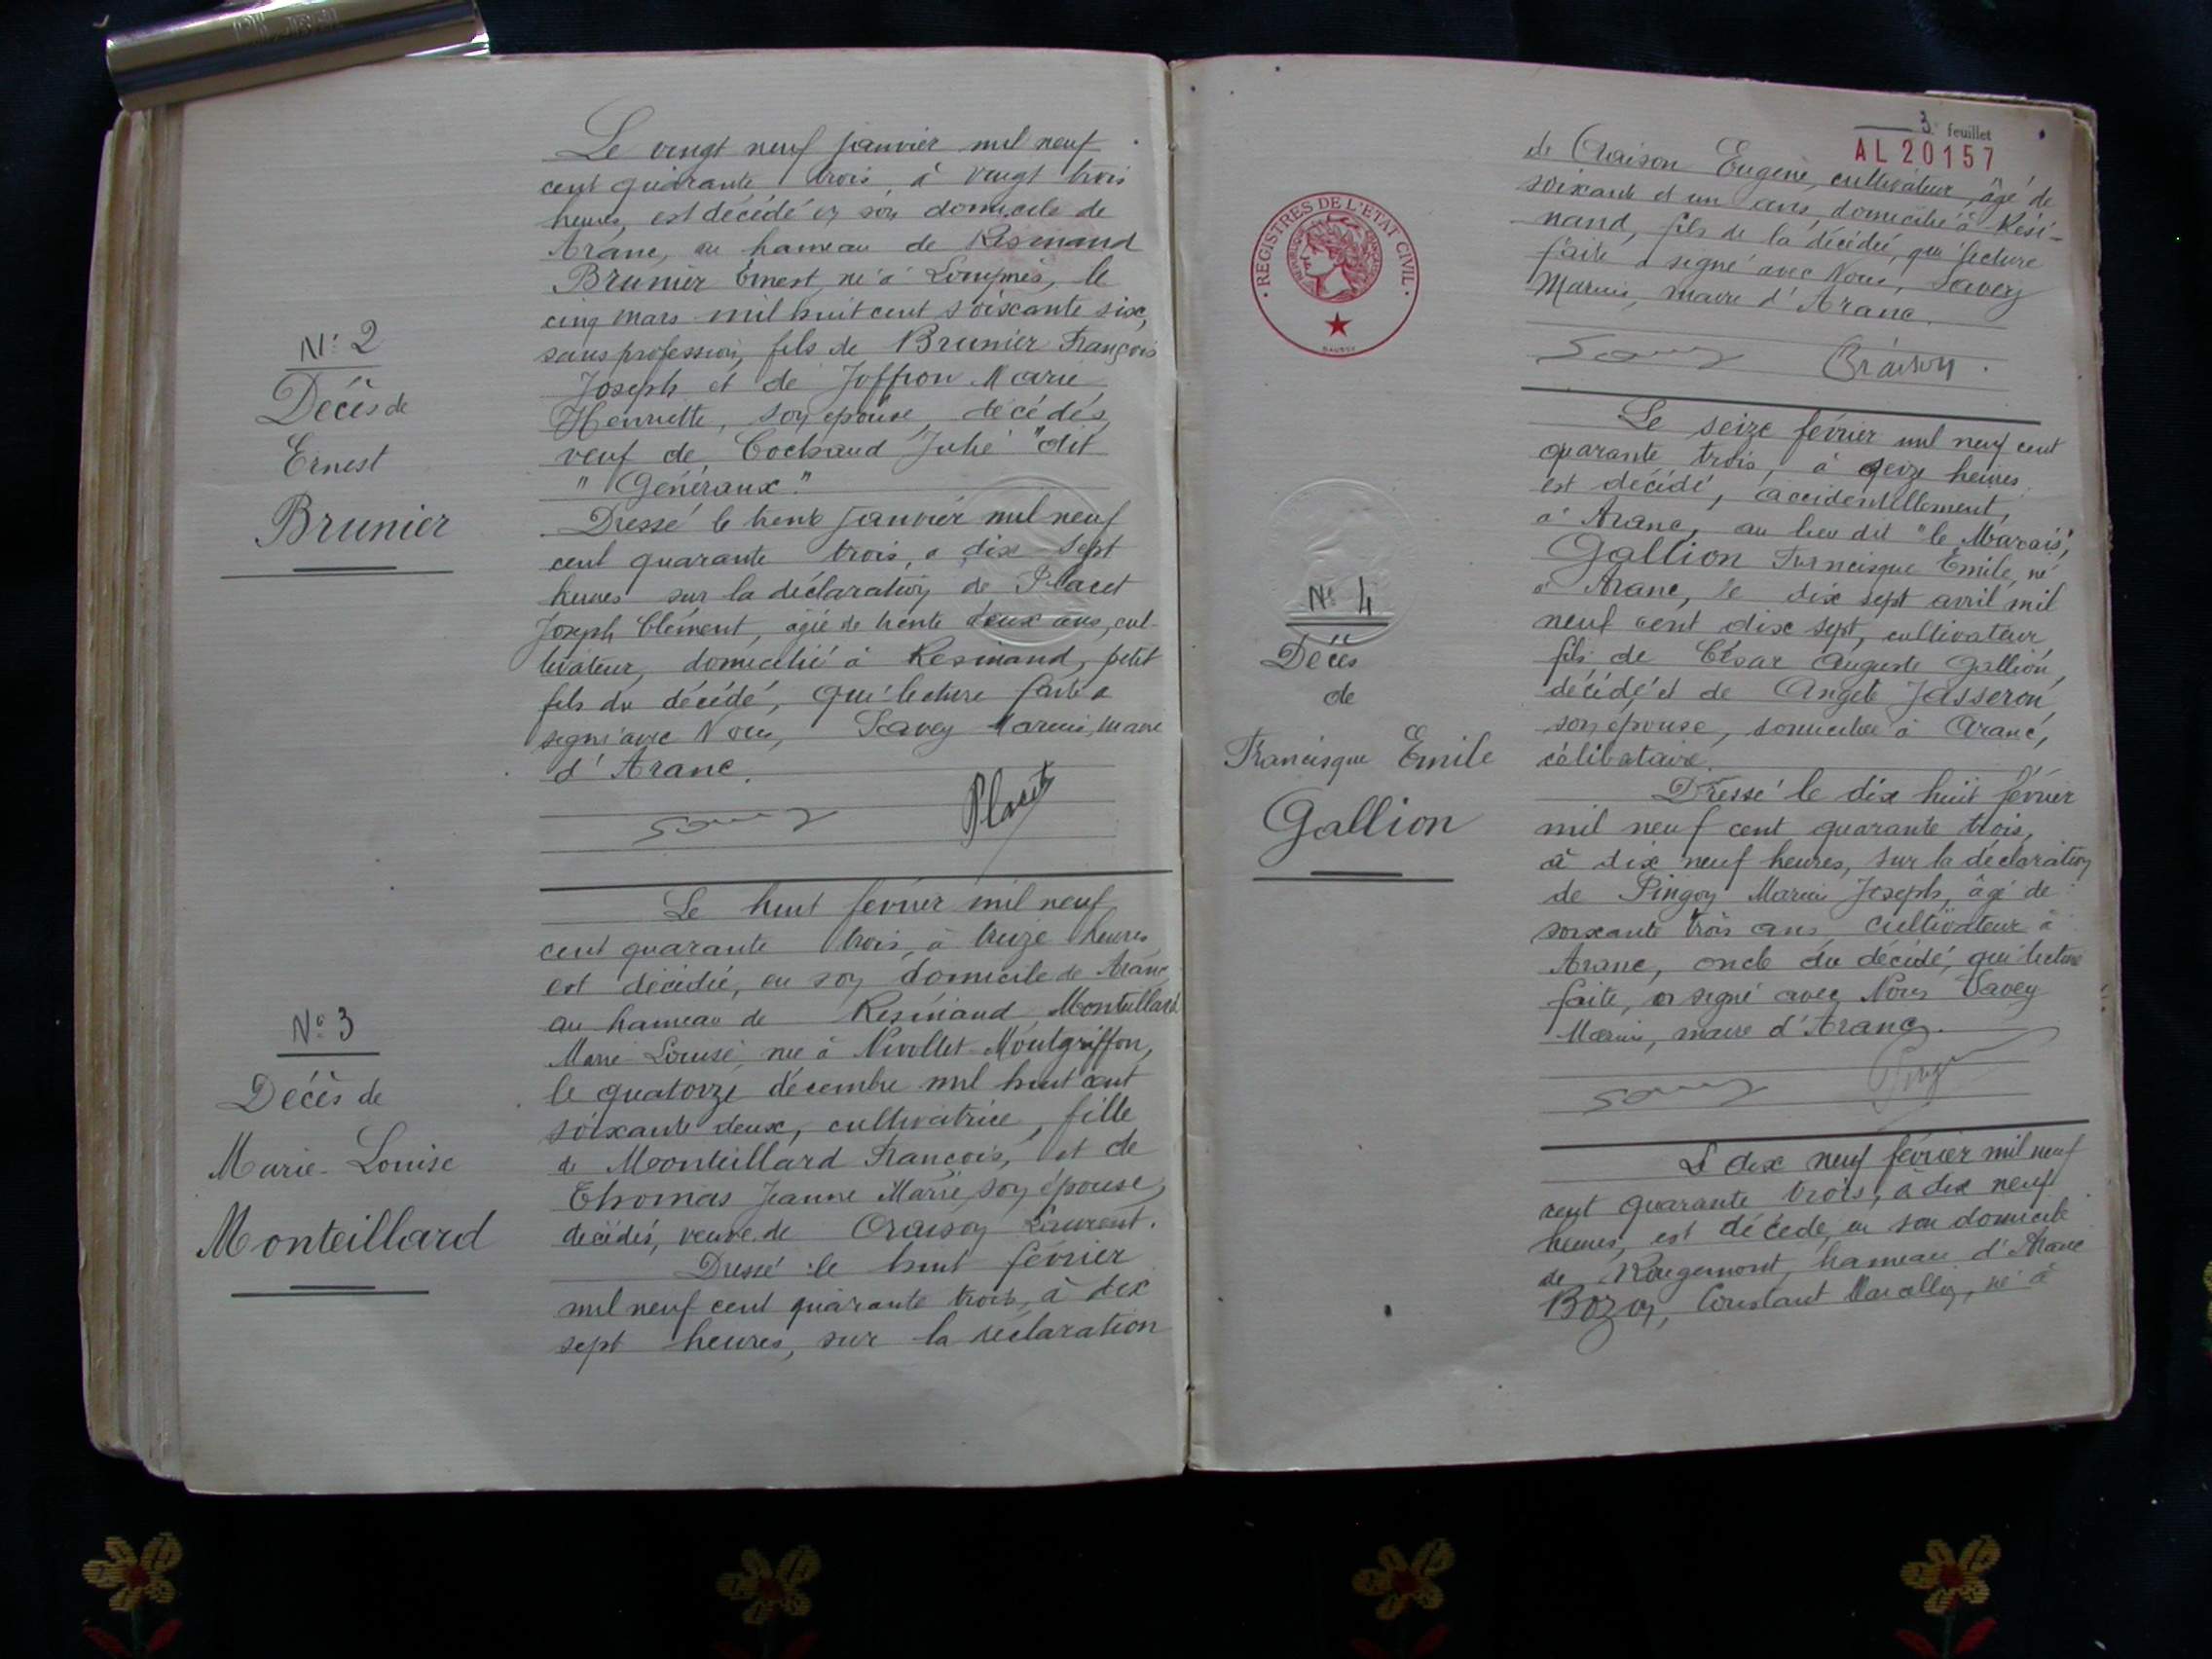 Le vingt neuf janvier mil neuf
cent quarante trois, à vingt trois
heures, est décédé en son domicile de
Aranc, au hameau de Résinand
Brunier Ernest, né à Lompnès, le
cinq mars mil huit cent soixante six,
sans profession, fils de Brunier François
Joseph et de Joffron Marie
Henriette, son épouse, décédés,
veuf de Cochaud Julie "dit
"Généraux."
Dressé le trente janvier mil neuf
cent quarante trois, à dix sept
heures sur la déclaration de Placet
Joseph Clément, âgé de trente deux ans, cul-
tivateur, domicilié à Résinand, petit
fils du décédé, qui lecture faite a
signé avec Nous, Savey Marius, maire
d'Aranc.
Savey Placet
N° 2
Décès de
Ernest
Brunier
Le huit février mil neuf
cent quarante trois, à treize heures
est décédée, en son domicile de Aranc
au hameau de Résinand, Monteillard
Marie Louise, née à Nivollet-Montgriffon,
le quatorze décembre mil huit cent
soixante deux, cultivatrice, fille
de Monteillard François, et de
Thomas Jeanne Marie, son épouse,
décédés, veuve de Craison Laurent.
Dressé le huit février
mil neuf cent quarante trois, à dix
sept heures, sur la déclaration
N° 3
Décès de
Marie-Louise
Monteillard
3e feuillet
AL 20157
de Craison Eugène, cultivateur, âgé de
soixante et un ans, domicilié à Rési-
nand, fils de la décédée, qui lecture
faite a signé avec Nous, Savey
Marius, maire d'Aranc.
Savey Craison
REGISTRES DE L'ETAT CIVIL
Le seize février mil neuf cent
quarante trois, à seize heures
est décédé, accidentellement,
à Aranc, au lieu dit "le Marais",
Gallion Francisque Emile, né
à Aranc, le dix sept avril mil
neuf cent dix sept, cultivateur
fils de César Auguste Gallion,
décédé, et de Angele Jasseron,
son épouse, domiciliée à Aranc,
célibataire.
Dressé le dix huit février
mil neuf cent quarante trois,
à dix neuf heures, sur la déclaration
de Pingon Marius Joseph, âgé de
soixante trois ans cultivateur à
Aranc, oncle du décédé, qui lecture
faite, a signé avec Nous Savey
Marius, maire d'Aranc.
Savey
N° 4
Décès
de
Francisque Emile
Gallion
Le dix neuf février mil neuf
cent quarante trois, à dix neuf
heures, est décédé, en son domicile
de Rougemont, hameau d'Aranc
Bozon, Constant Marcellin, né à